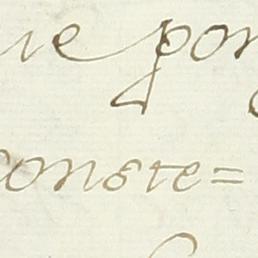 ue por
conste=